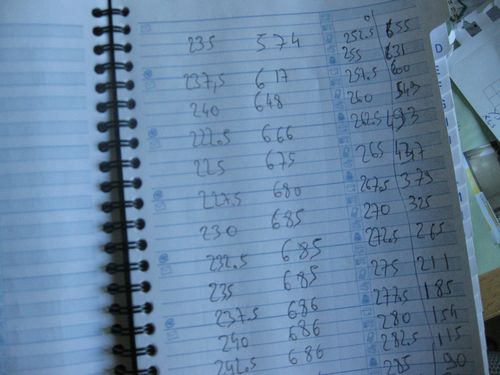 235 574
237,5 617
240 648
222.5 666
225 675
227.5 680
230 685
232.5 685
235 685
237.5 686
240 686
242.5 686
252.5 655
255 631
257.5 600
260 543
262.5 493
265 437
267.5 375
270 325
272.5 265
275 211
277.5 185
280 154
282.5 115
285 90
D